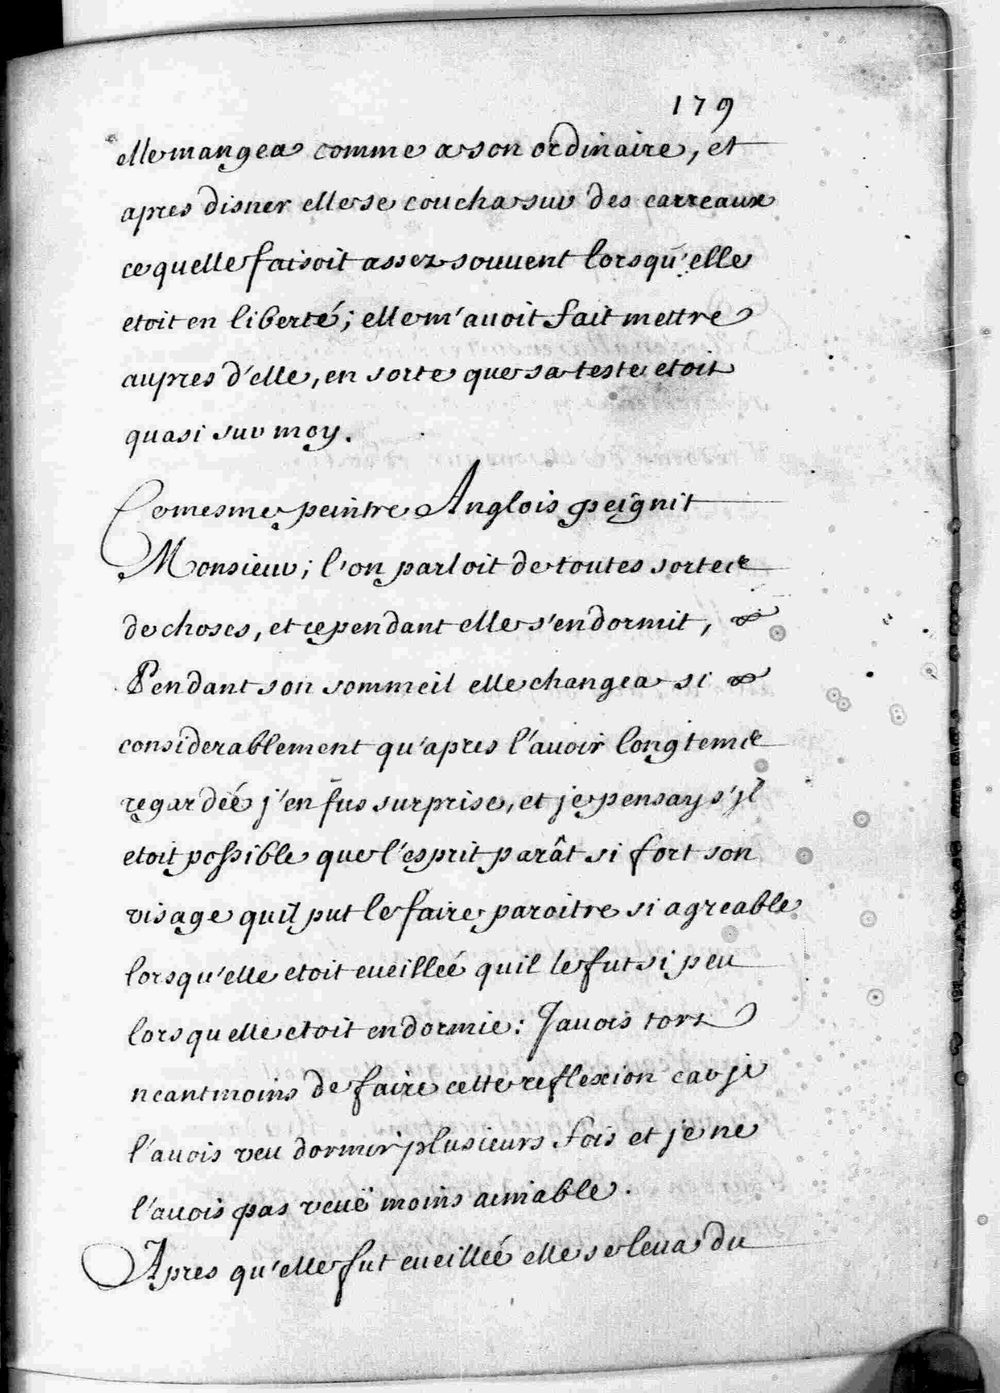 179
elle mangea comme a son ordinaire, et
apres disner elle se coucha sur des carreaux
ce quelle faisoit assez souuent lorsqu'elle
etoit en liberté; elle m'auoit fait mettre
aupres d'elle, en sorte que sa teste etoit
quasi sur moy.
Ce mesme peintre Anglois peignit
Monsieur; l'on parloit de toutes sortes
de choses, et cependant elle s'endormit,
Pendant son sommeil elle changea si
considerablement qu'apres l'auoir longtems
regardeé j'en fus surprise, et je pensay s'jl
etoit possible que l'esprit parât si fort son
visage quil put le faire paroitre si agreable
lorsqu'elle etoit eueilleé quil le fut si peu
lorsquelle etoit endormie: Jauois tort
neantmoins de faire cette reflexion car je
l'auois veu dormir plusieurs fois et je ne
l'auois pas veuë moins aimable.
Apres qu'elle fut eueilleé elle se leua du